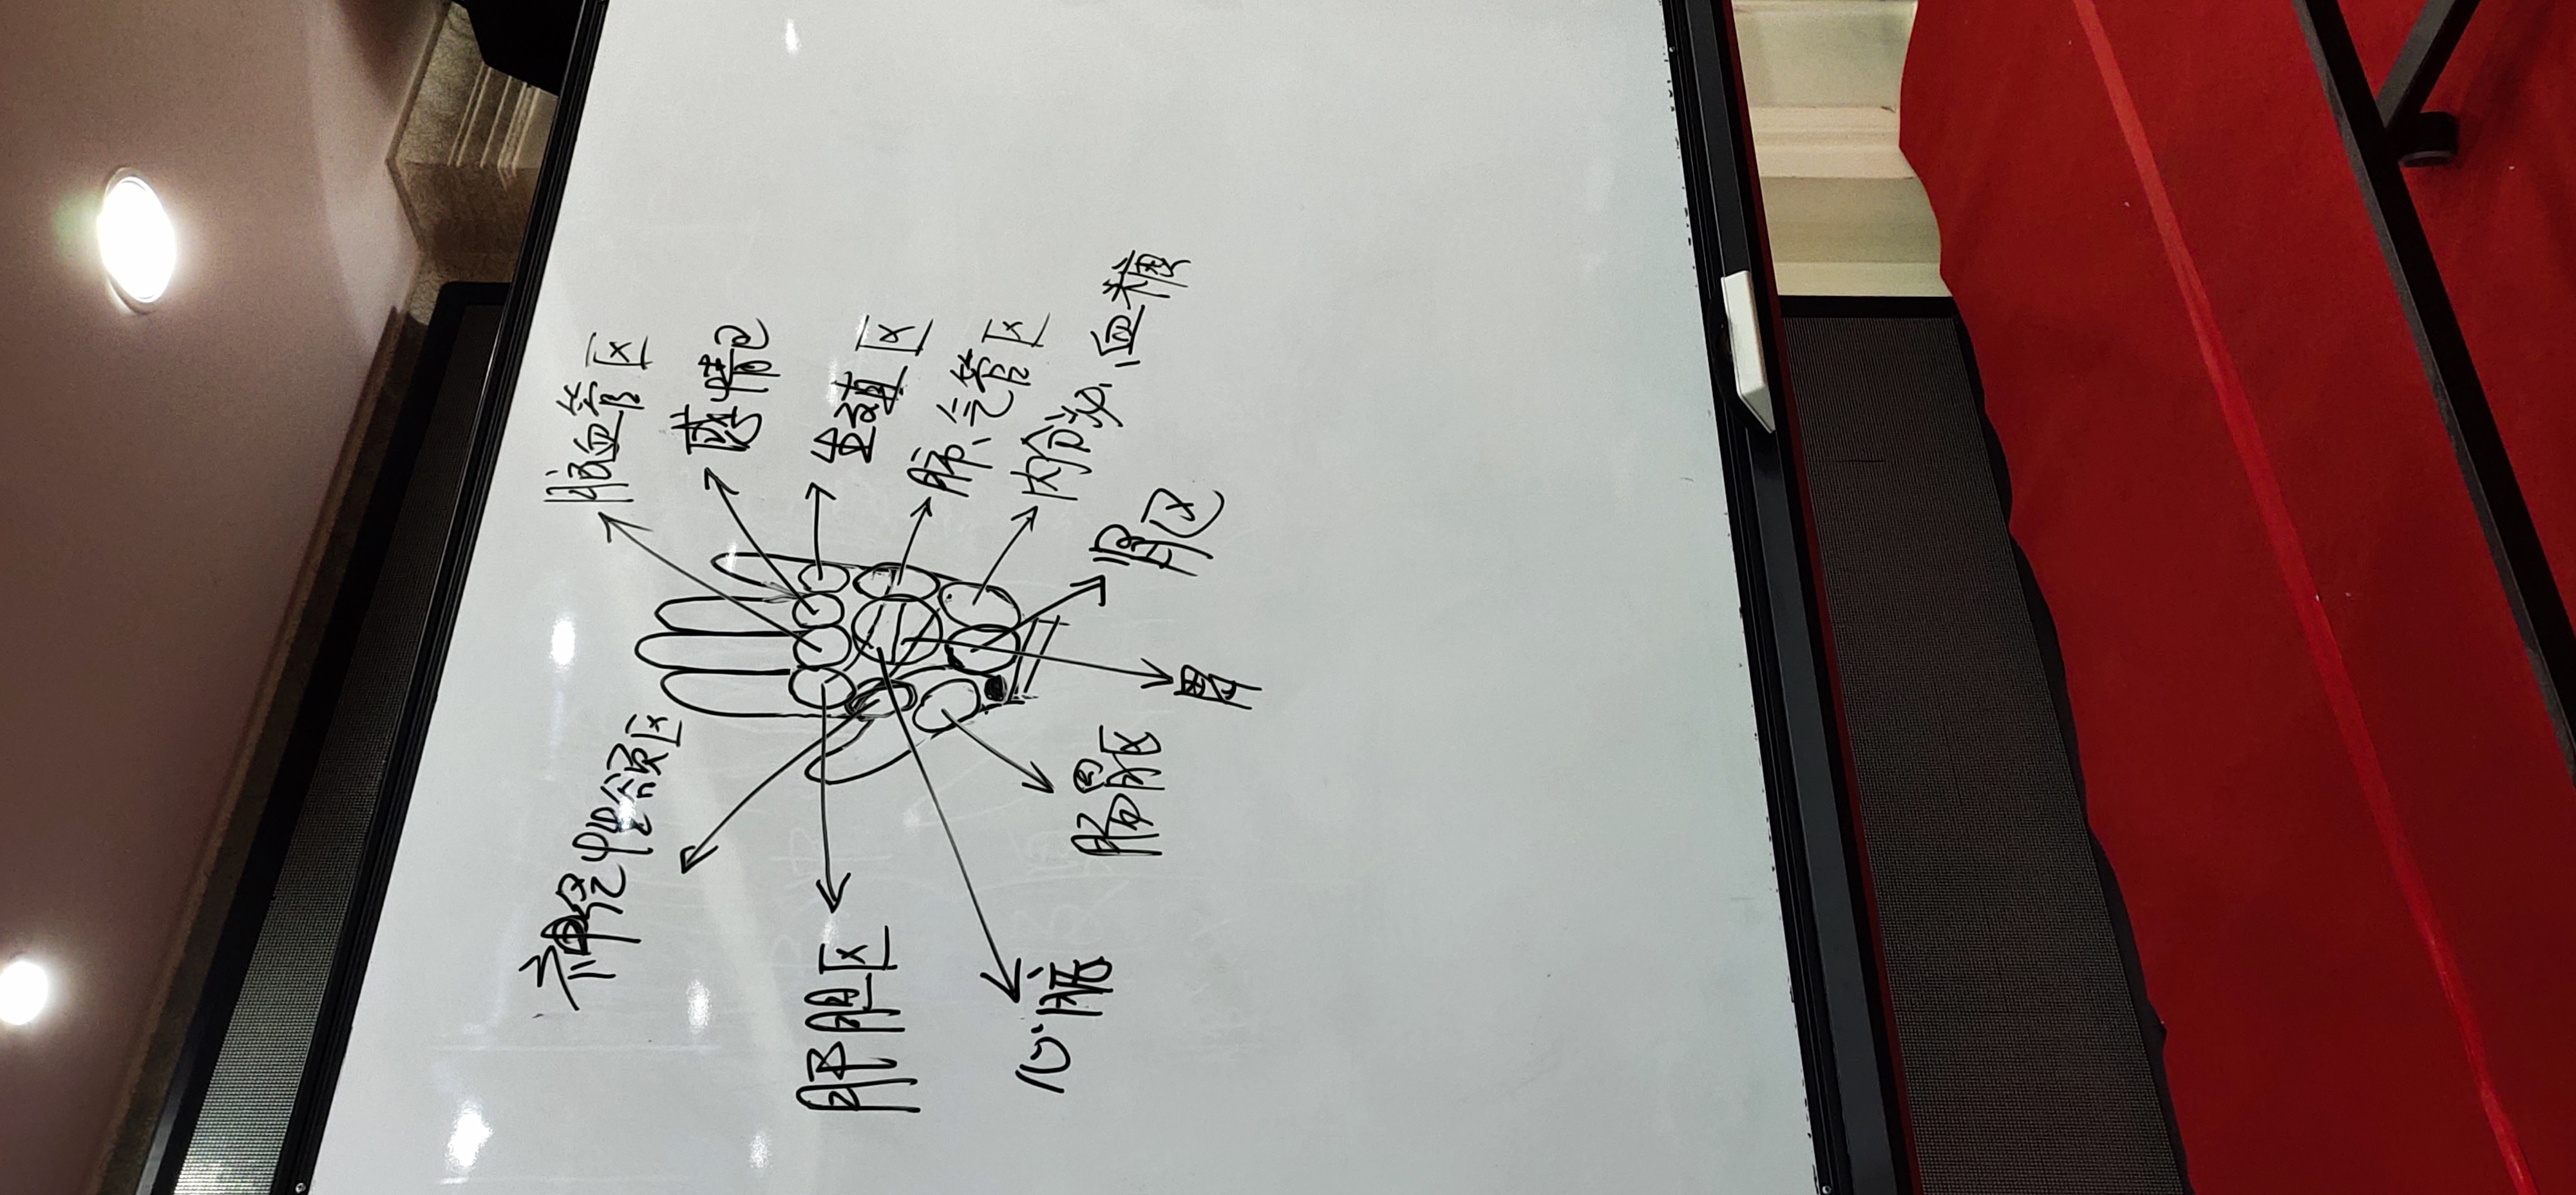 脑血管区
感情区
神经
生殖区
肺气管区
肝胆区
内分泌、血糖
心脏
肾区
肠胃区
胃